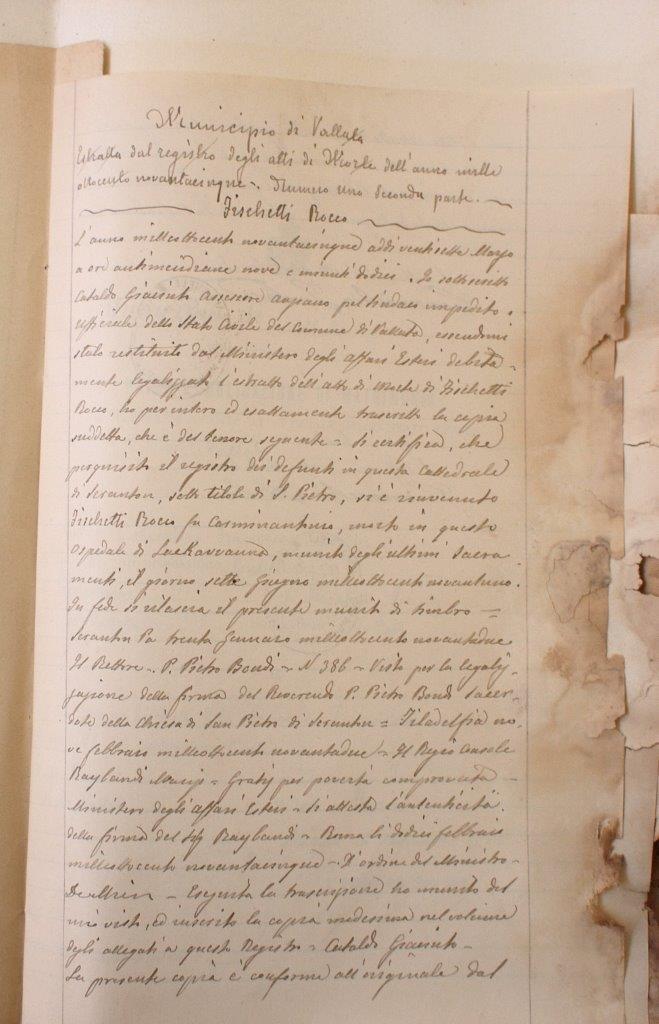 Municipio di Vallata
Estratto dal registro degli atti di Morte dell'anno mille
ottocento novantacinque - Numero uno Seconda parte.
Fischetti Rocco
L'anno milleottocento novantacinque addì ventisette Marzo
a ore antimeridiane nove e minuti dodici. Io sottoscritto
Cataldo Giacinto Assessore anziano pel Sindaco impedito,
Uffiziale dello Stato Civile del Comune di Vallata, essendomi
stato restituito dal Ministero degli affari Esteri debita-
mente legalizzato l'estratto dell'atto di morte di Fischetti
Rocco, ho per intero ed esattamente trascritto la copia
suddetta, che è del tenore seguente = Si certifica, che
perquisito il registro dei defunti in questa Cattedrale
di Scranton, sotto titolo di S. Pietro, si è rinvenuto
Fischetti Rocco fu Carminantonio, morto in questo
Ospedale di Lackawanna, munito degli ultimi Sacra-
menti, il giorno sette Giugno milleottocento novantuno.
In fede si rilascia il presente munito di timbro =
Scranton Pa trenta Gennaio milleottocento novantadue
Il Rettore - P. Pietro Bondi - N 386 - Visto per la legaliz-
zazione della firma del Reverendo P. Pietro Bondi Sacer-
dote della Chiesa di San Pietro di Scranton = Filadelfia no-
ve febbraio milleottocento novantadue - Il Regio Console
Raybaudi - Gratis per povertà comprovata -
Ministero degli affari Esteri - Si attesta l'autenticità
della firma del Sig Raybaudi - Roma li dodici febbraio
milleottocento novantacinque - D'ordine del Ministro -
Eseguita la trascrizione ho munito del
mio visto, ed inserito la copia medesima nel volume
degli allegati a questo Registro - Cataldo Giacinto -
La presente copia è conforme all'originale dal